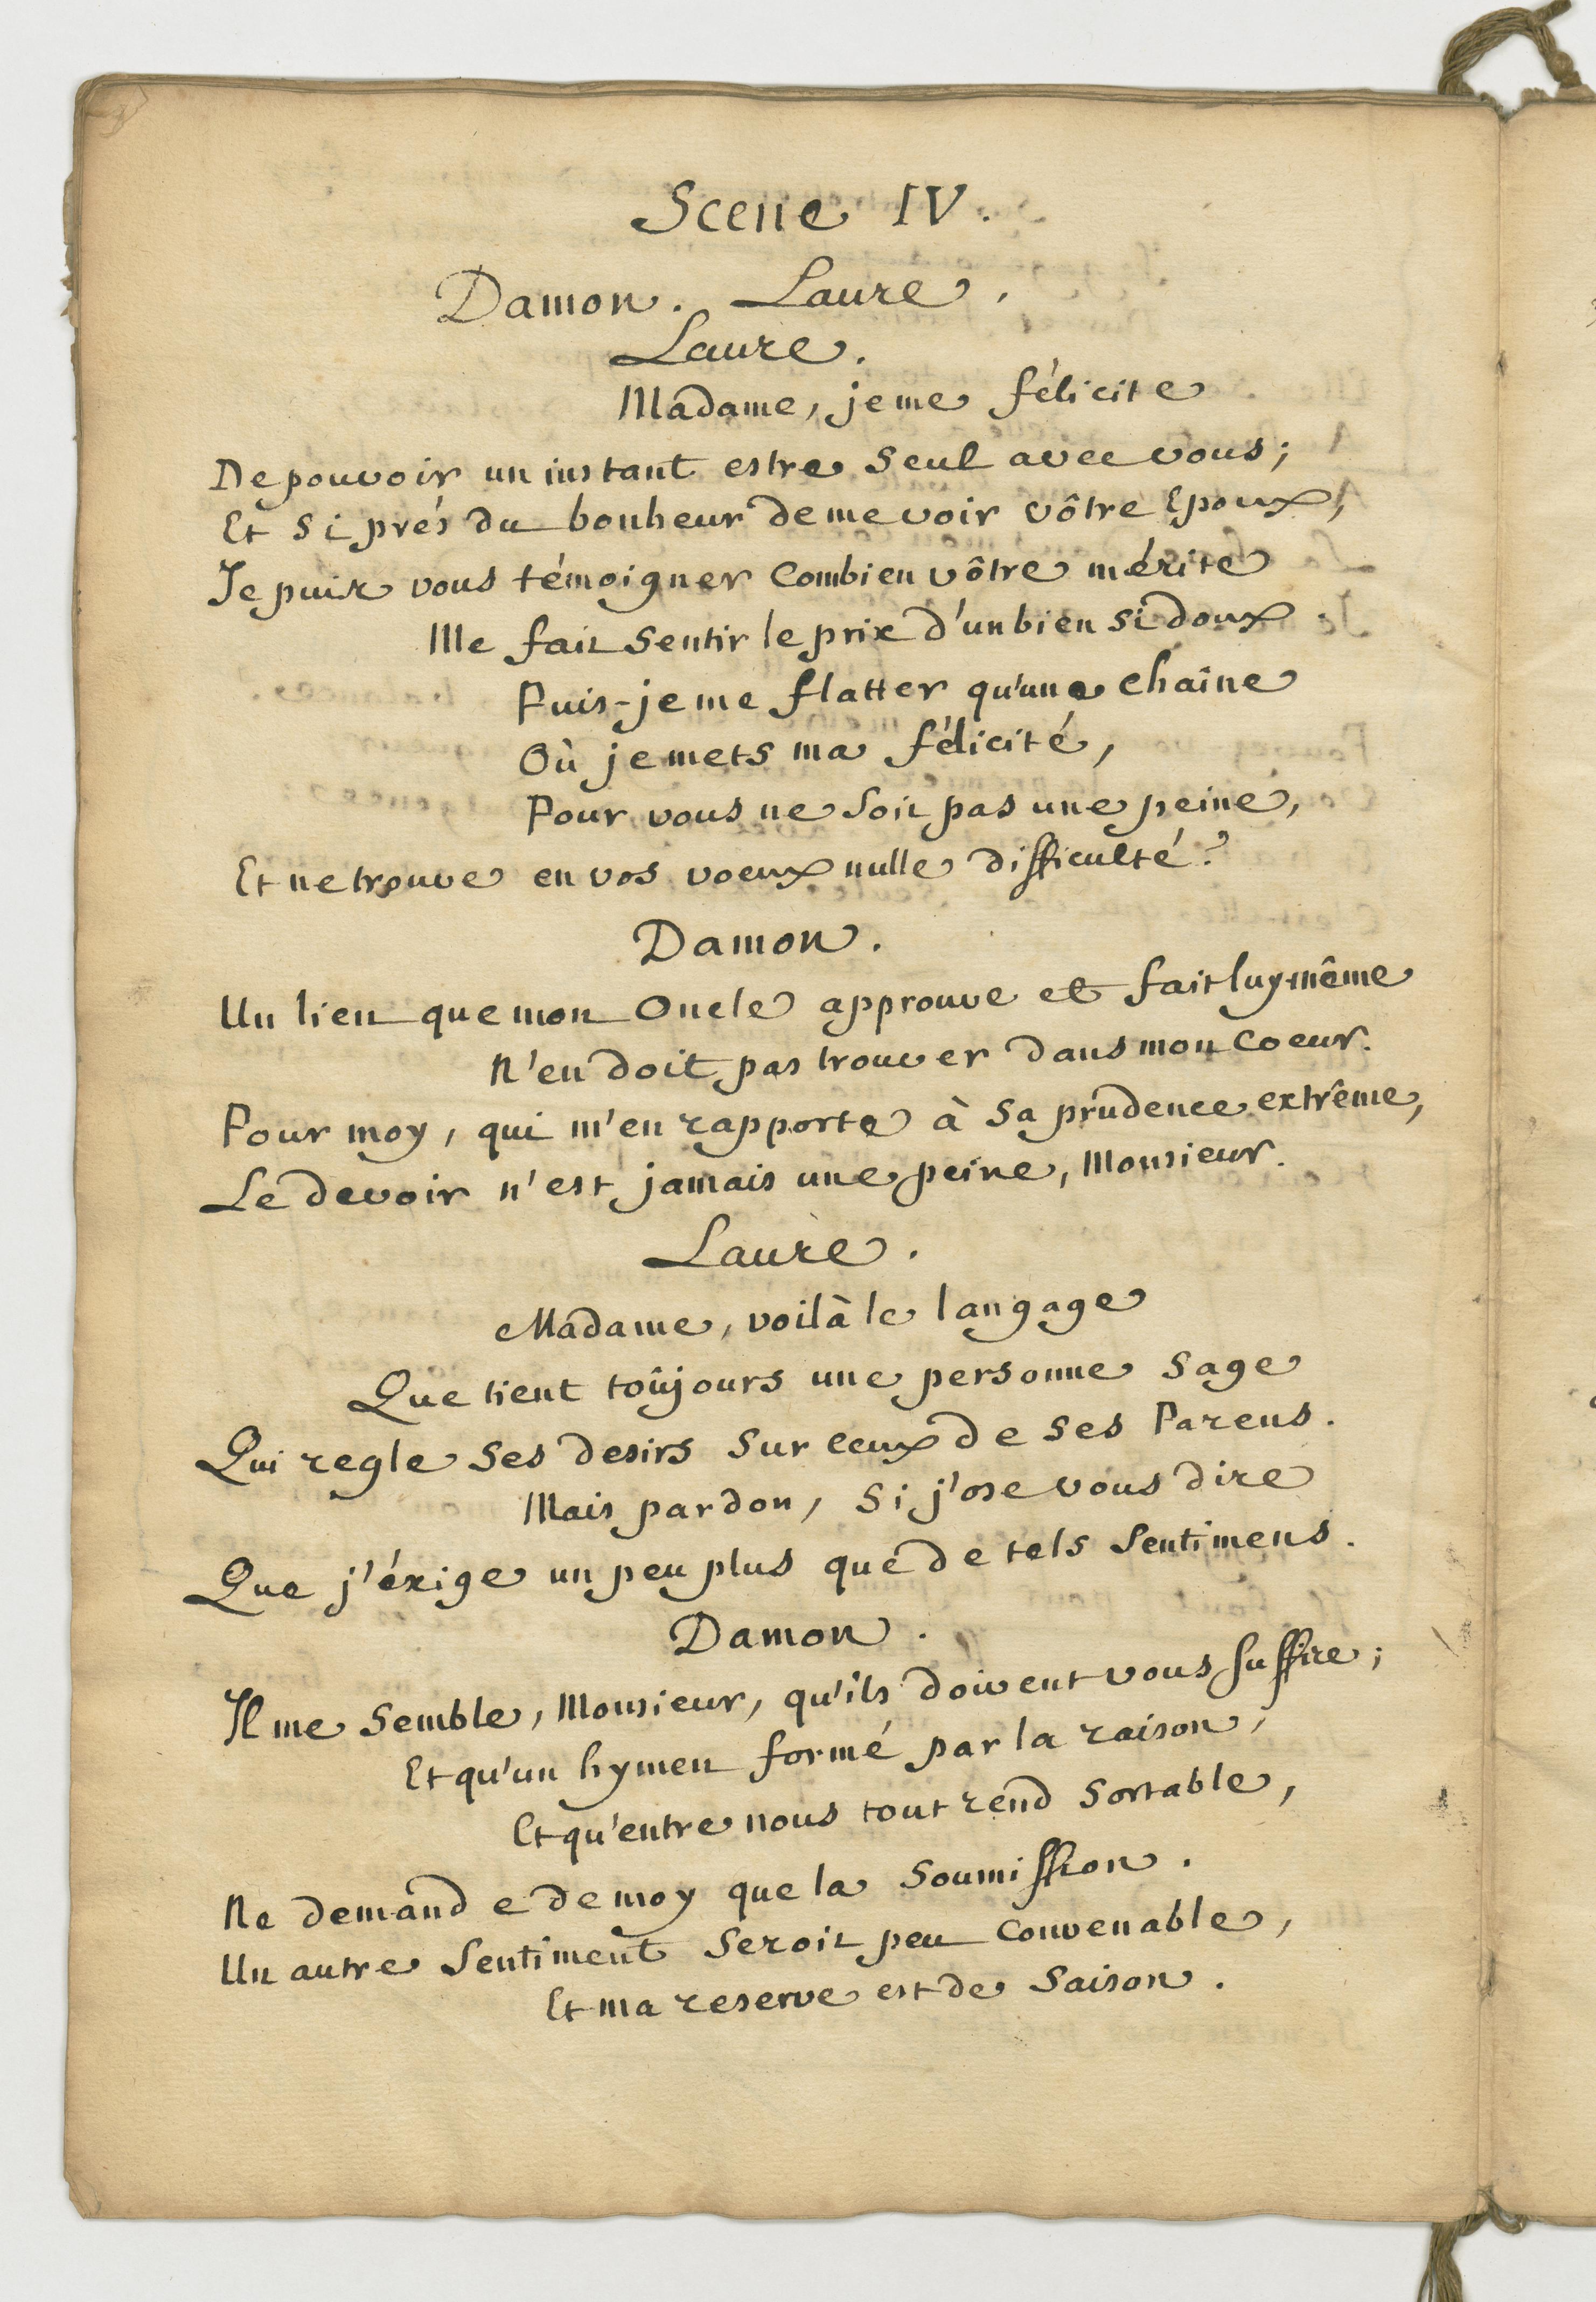 Scene IV.
Damon. Laure.
Laure.
Madame, je me félicite
De pouvoir un instant estre seul avec vous;
Et si prés du bonheur de me voir vôtre Epoux,
Je puis vous témoigner combien vôtre mérite
Me fait sentir le prix d'un bien si doux.
Puis-je me flatter qu'une chaîne
Où je mets ma félicité,
Pour vous ne soit pas une peine,
Et ne trouve en vos voeux nulle difficulté?
Damon.
Un lien que mon Oncle approuve et fait luy-même
N'en doit pas trouver dans mon coeur.
Pour moy, qui m'en rapporte à sa prudence extrême,
Le devoir n'est jamais une peine, Monsieur.
Laure.
Madame, voilà le langage
Que tient toûjours une personne sage
Qui regle ses desirs sur ceux de ses Parens.
Mais pardon, si j'ose vous dire
Que j'éxige un peu plus que de tels sentimens.
Damon.
Il me semble, Monsieur, qu'ils doivent vous suffire;
Et qu'un hymen formé par la raison,
Et qu'entre nous tout rend sortable,
Ne demande de moy que la soumission.
Un autre sentiment seroit peu convenable,
Et ma reserve est de saison.